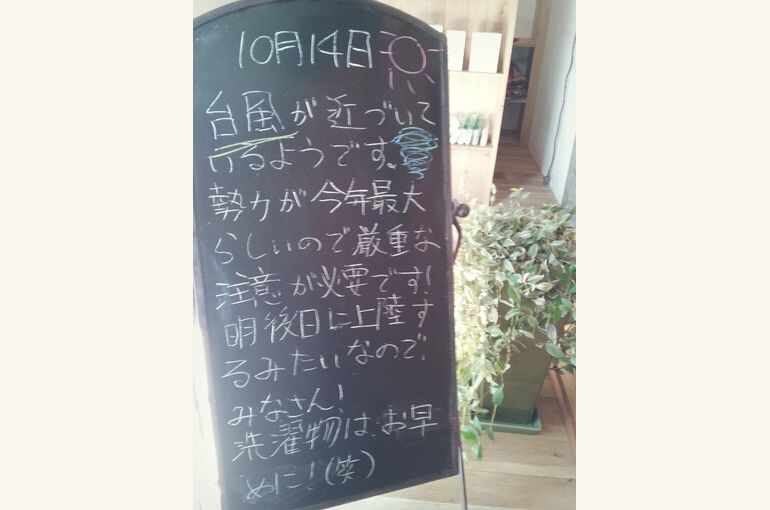 10月14日
台風が近づいて
けるようです。
勢力が今年最大
らしいので厳重な
注意が必要です!
明後日に上陸す
るみたいなので、
みなさん!
洗濯物はお早
めに!(笑)